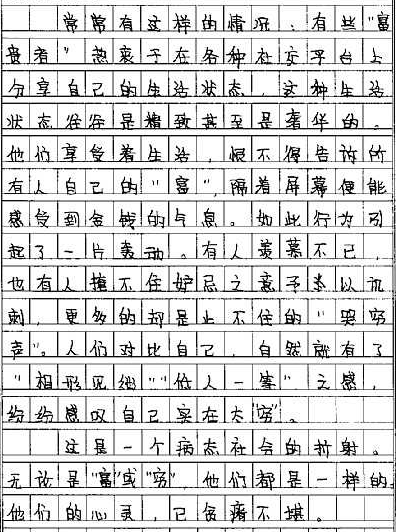 常常有这样的情况：有些“富
贵者”热衷于在各种社交平台上
分享自己的生活状态，这种生活
状态往往是精致甚至是奢华的。
他们享受着生活，恨不得告诉所
有人自己的“富”，隔着屏幕便能
感受到金钱的气息。如此行为引
起了一片轰动。有人羡慕不已，
也有人掩不住妒忌之意予以讥
刺，更多的却是止不住的“哭穷
声”。人们对比自己，自然就有了
“相形见绌”“低人一等”之感，
纷纷感叹自己实在太“穷”。
这是一个病态社会的折射。
无论是“富”或“穷”，他们都是一样的。
他们的心灵，已贫瘠不堪。